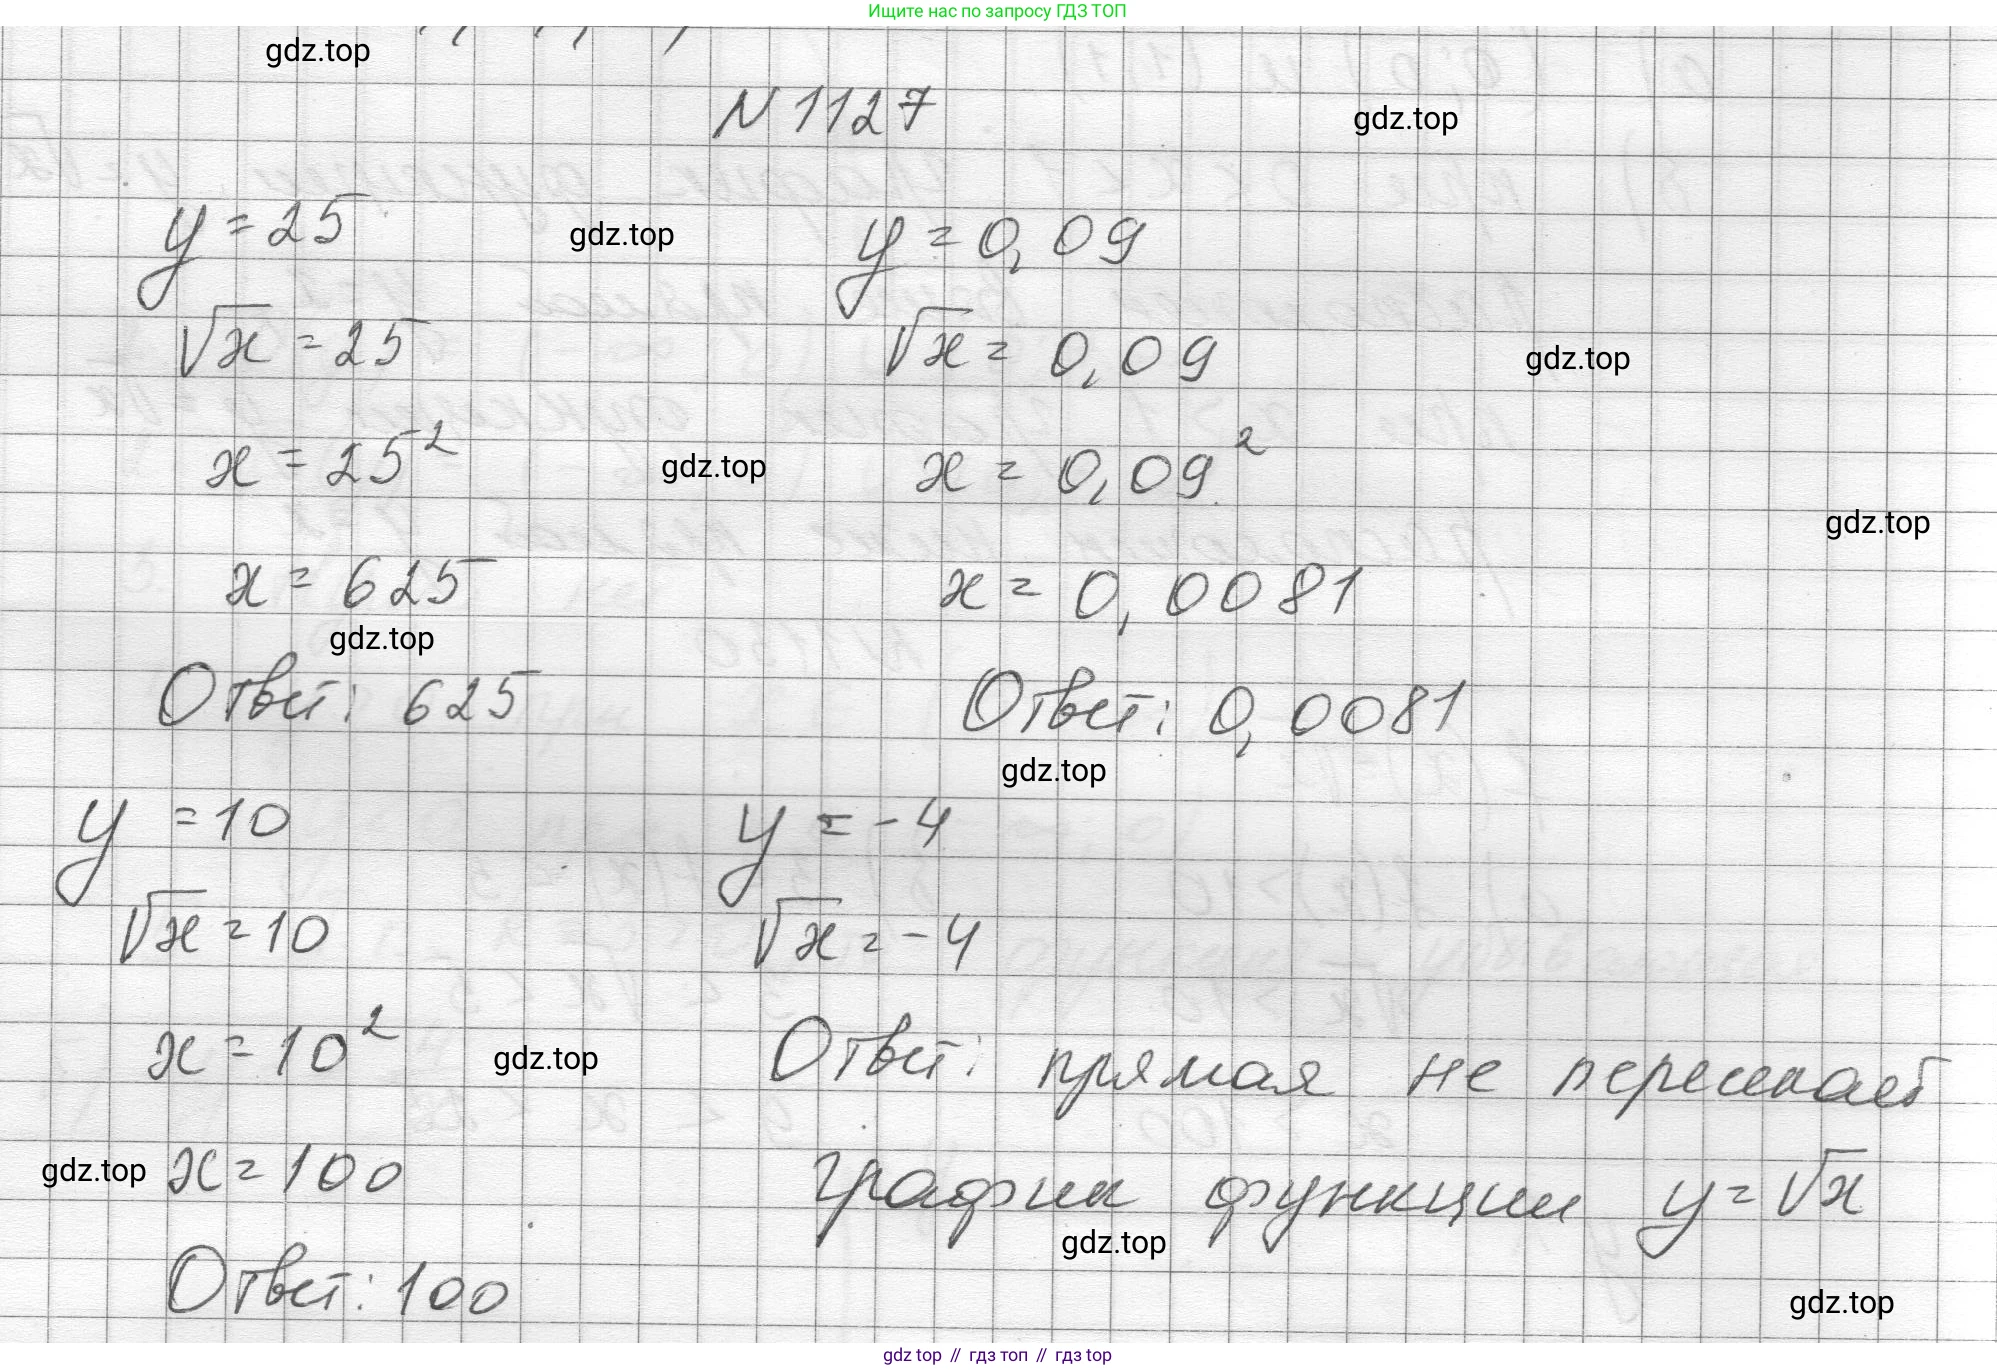 Ищите нас по запросу ГДЗ ТОП
gdz.top
N 1127
gdz.top
y = 25
gdz.top
y = 0,09
√x = 25
√x = 0,09
gdz.top
x = 25²
gdz.top
x = 0,09²
gdz.top
x = 625
x = 0,0081
gdz.top
Ответ: 625
Ответ: 0,0081
gdz.top
y = 10
y = -4
√x = 10
√x = -4
x = 10²
gdz.top
Ответ: прямая не пересекает
gdz.top
x = 100
график функции y = √x
gdz.top
Ответ: 100
gdz.top
gdz top // гдз топ // гдз top